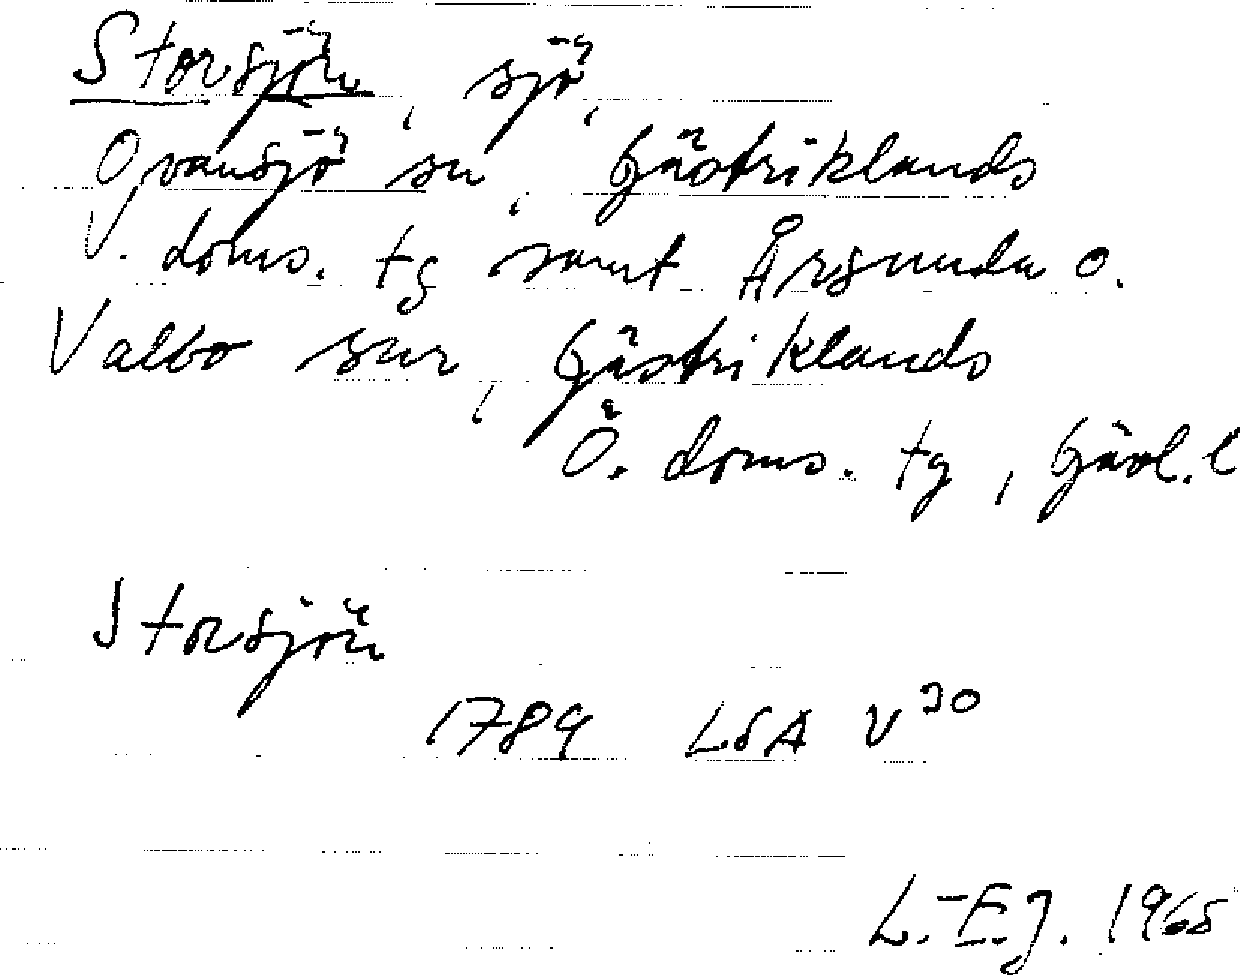 Storsjön, sjö,
Ovansjö sn, Gästriklands
V. doms. tg samt Årsunda o.
Valbo snr, Gästriklands
Ö. doms. tg, Gävl. l
Storsjön
1789 LSA V³⁰
L.-E.J. 1965